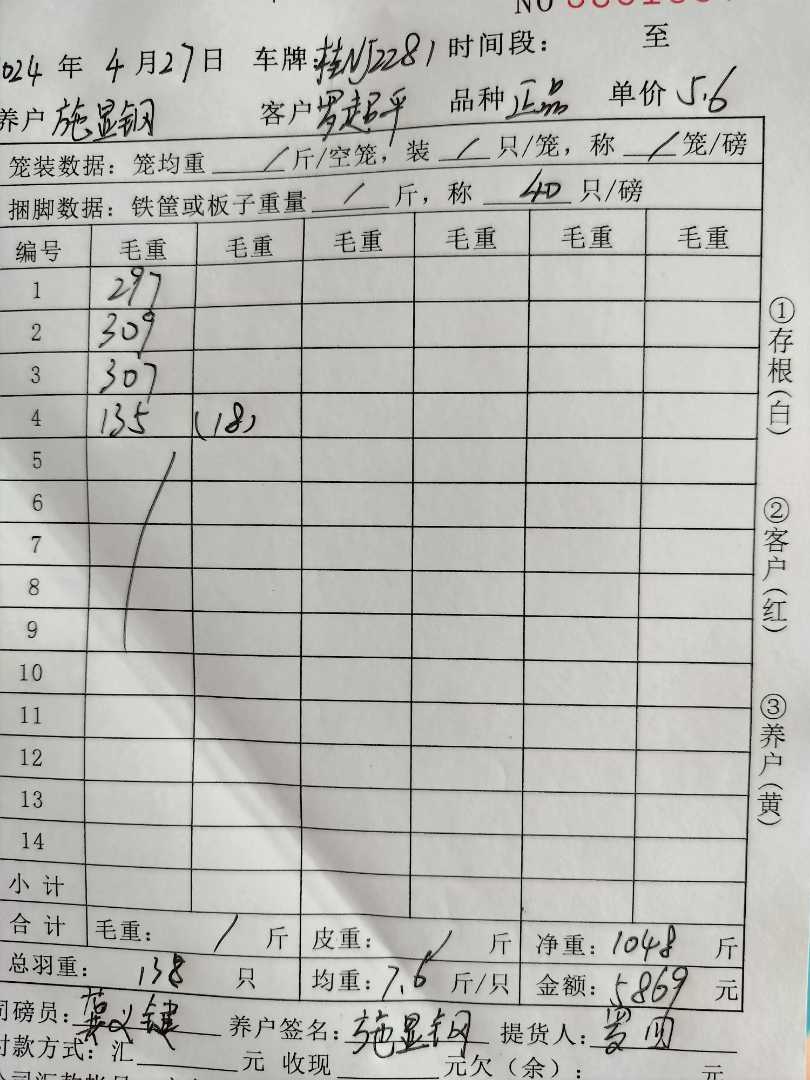 NO
2024 年 4 月 27 日 车牌:桂NJ2281 时间段: 至
养户 施显钢 客户 罗超平 品种 正品 单价 5.6
笼装数据: 笼均重 / 斤/空笼, 装 / 只/笼, 称 / 笼/磅
捆脚数据: 铁筐或板子重量 / 斤, 称 40 只/磅
编号 毛重 毛重 毛重 毛重 毛重 毛重
1 297
2 309
3 307
4 135 (18)
5
6
7
8
9
10
11
12
13
14
小 计
合 计 毛重: / 斤 皮重: / 斤 净重: 1048 斤
总羽重: 138 只 均重: 7.6 斤/只 金额: 5869 元
司磅员: 键 养户签名: 施显钢 提货人:
付款方式: 汇 元 收现 元欠(余): 元
①存根(白)
②客户(红)
③养户(黄)